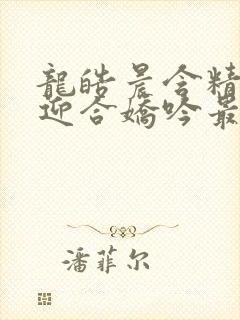 龍皓晨含精
迎合嬌吟最
潘菲尔